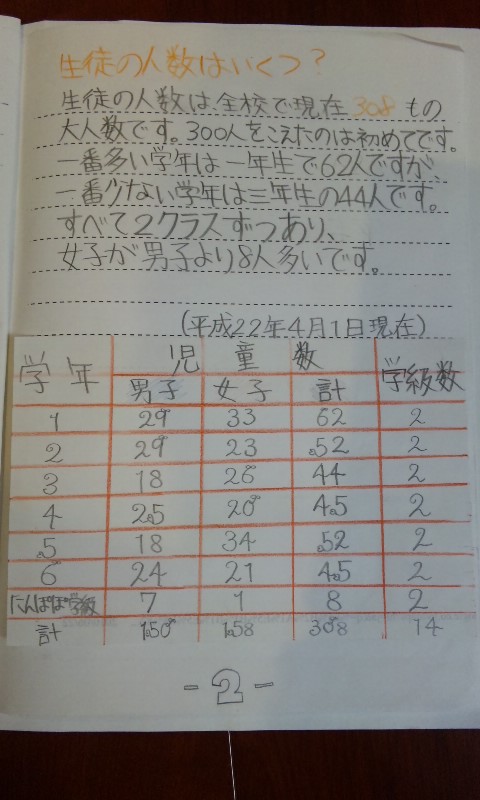 生徒の人数はいくつ?
生徒の人数は、全校で現在308もの
大人数です。300人をこえたのは初めてです。
一番多い学年は一年生で62人ですが、
一番少ない学年は三年生の44人です。
すべて2クラスずつあり、
女子が男子より8人多いです。
(平成22年4月1日現在)
学年 児童数 学級数
男子 女子 計
1 29 33 62 2
2 29 23 52 2
3 18 26 44 2
4 25 20 45 2
5 18 34 52 2
6 24 21 45 2
たんぽぽ学級 7 1 8 2
計 150 158 308 14
-2-